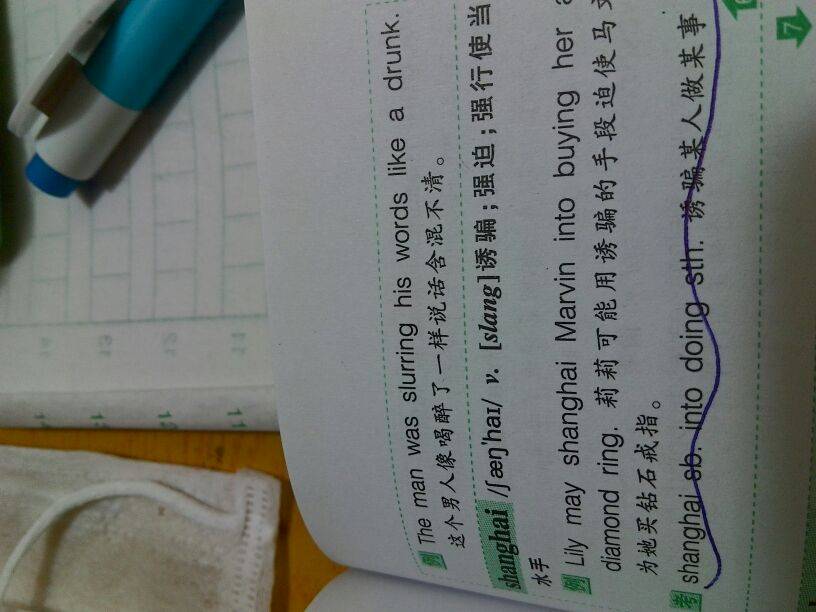 例 The man was slurring his words like a drunk.
这个男人像喝醉了一样说话含混不清。
shanghai /ʃæŋ'haɪ/ v. [slang] 诱骗；强迫；强行使当
水手
例 Lily may shanghai Marvin into buying her a
diamond ring. 莉莉可能用诱骗的手段迫使马
为她买钻石戒指。
考 shanghai sb. into doing sth. 诱骗某人做某事
7
14
13
12
11